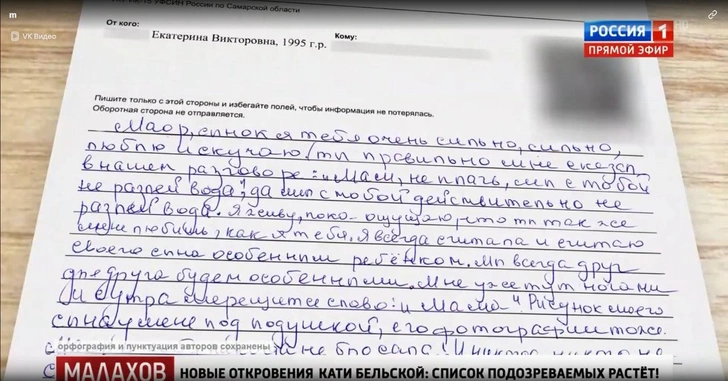 m
VK Видео
УФСИН России по Самарской области
РОССИЯ 1 HD
ПРЯМОЙ ЭФИР
От кого:
Кому:
Екатерина Викторовна, 1995 г.р.
Пишите только с этой стороны и избегайте полей, чтобы информация не потерялась.
Оборотная сторона не отправляется.
сынок я тебя очень сильно, сильно,
люблю и скучаю! ты правильно мне сказал
в нашем разговоре: "Мам, не плачь, мы с тобой
не разлей вода", да мы с тобой действительно не
разлей вода. Я живу, пока ощущаю, что ты так же
меня любишь, как я тебя. Я всегда считала и считаю
своего сына особенным ребёнком. Мы всегда друг
для друга будем особенными. Мне уже тут ночами
и с утра мерещится слово: "Мама". Рисунок моего
сына у меня под подушкой, его фотографии тоже.
не бросала.
орфография и пунктуация авторов сохранены
МАЛАХОВ
НОВЫЕ ОТКРОВЕНИЯ КАТИ БЕЛЬСКОЙ: СПИСОК ПОДОЗРЕВАЕМЫХ РАСТЁТ!